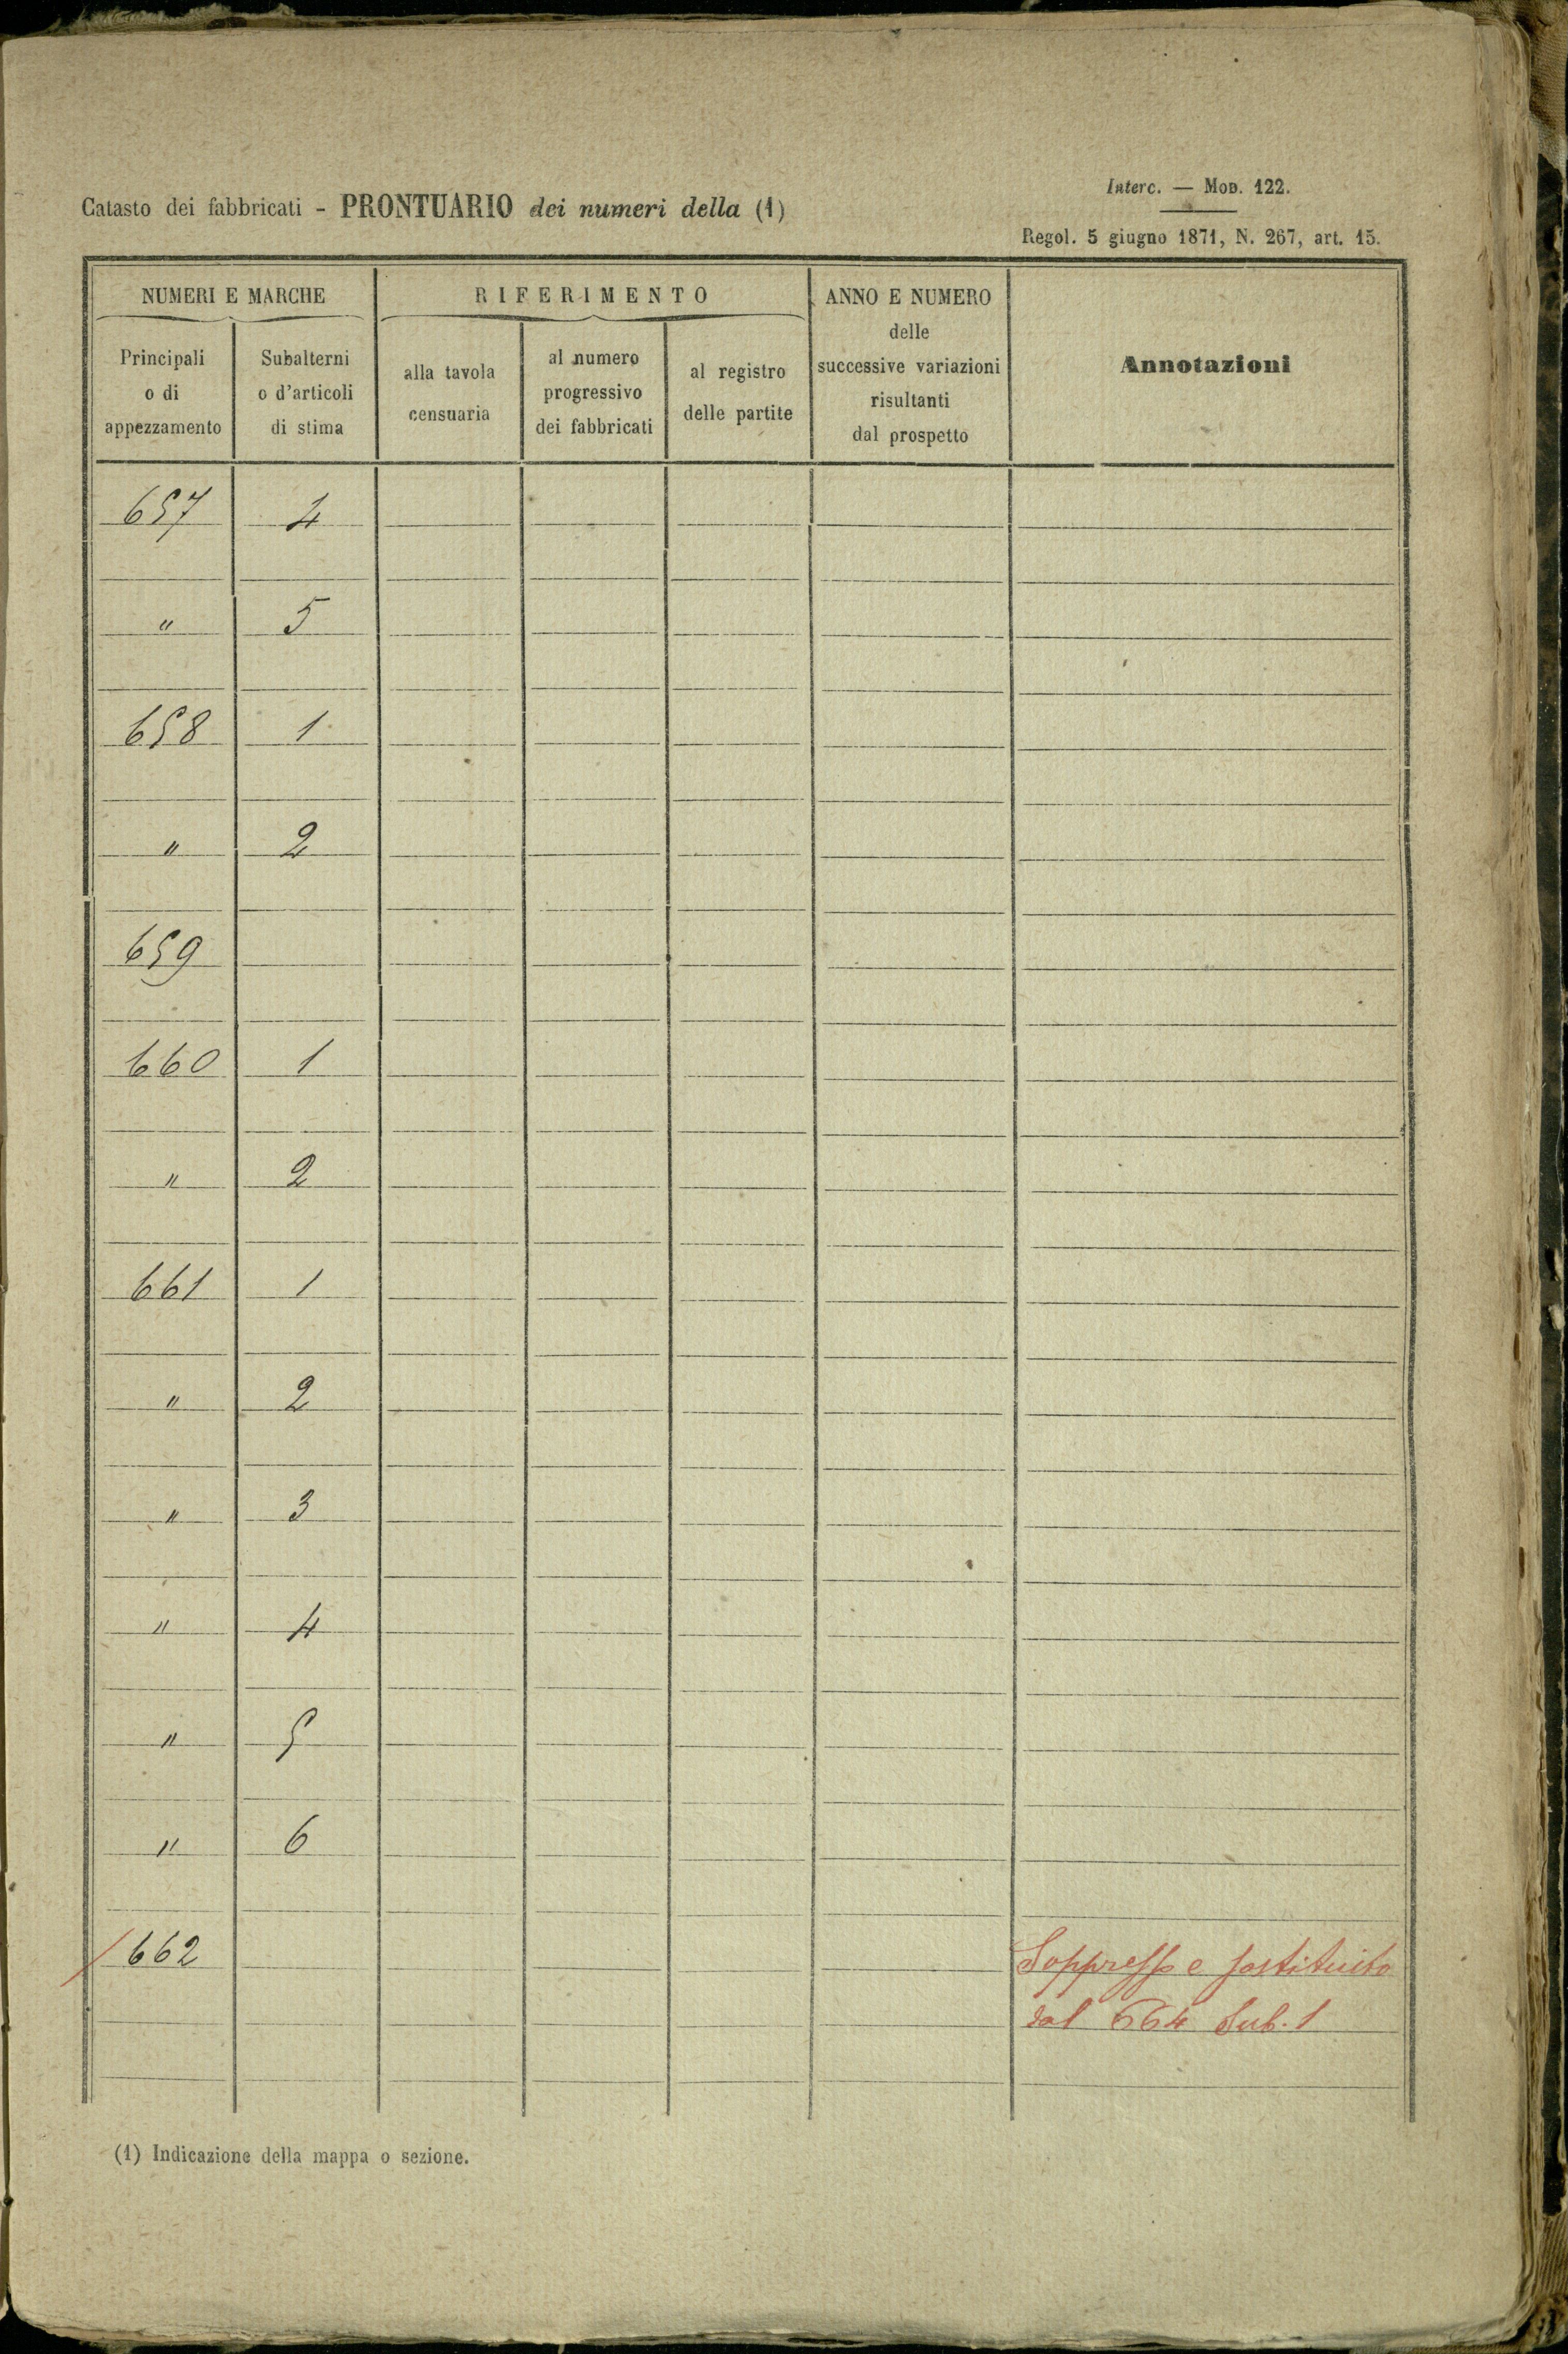 Interc. — Mod. 122.
Catasto dei fabbricati - PRONTUARIO dei numeri della (1)
Regol. 5 giugno 1871, N. 267, art. 15.
NUMERI E MARCHE
RIFERIMENTO
ANNO E NUMERO
delle
successive variazioni
risultanti
dal prospetto
Annotazioni
Principali
o di
appezzamento
Subalterni
o d'articoli
di stima
alla tavola
censuaria
al numero
progressivo
dei fabbricati
al registro
delle partite
657 4
" 5
658 1
" 2
659
660 1
" 2
661 1
" 2
" 3
" 4
" 5
" 6
/ 662 Soppresso e sostituito
dal 664 Sub. 1
(1) Indicazione della mappa o sezione.